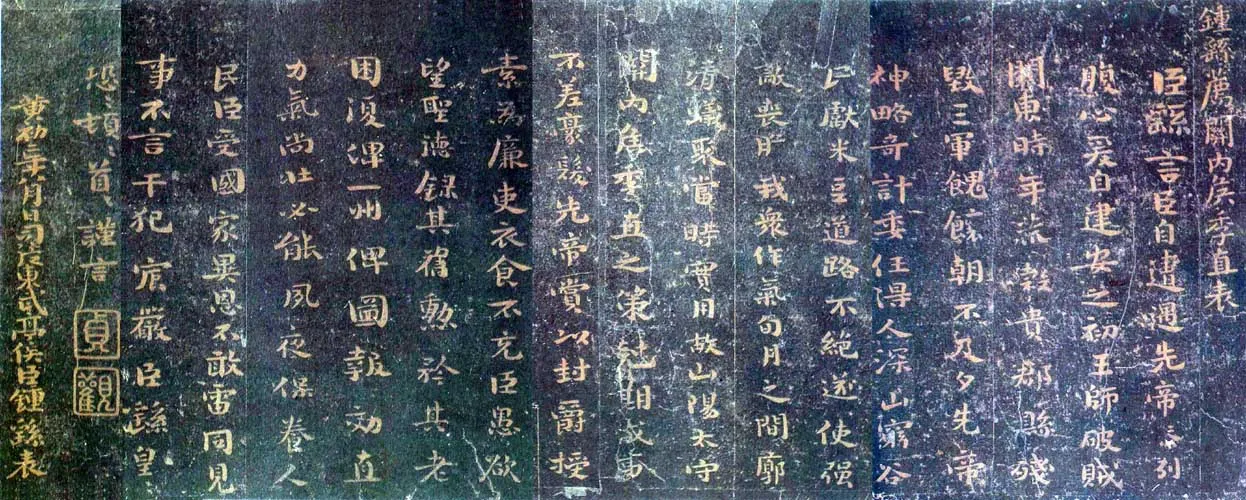 鍾繇薦關内侯季直表
臣繇言臣自遭遇先帝忝列
腹心爰自建安之初王師破賊
關東時年荒糓貴郡縣殘
毁三軍餽饟朝不及夕先帝
神略奇計委任得人深山窮谷
民獻米豆道路不絕遂使强
敵喪膽我衆作氣旬月之間廓
清蟻聚當時實用故山陽太守
關内侯季直之策剋期成事
不差豪髮先帝賞以封爵授
素為廉吏衣食不充臣愚欲
望聖德錄其舊勲矜其老
困復俾一州俾圖報効直
力氣尚壯必能夙夜保養人
民臣受國家異恩不敢雷同見
事不言干犯宸嚴臣繇皇
恐々頓々首々謹言
貞觀
黃初二年八月日司徒東武亭侯臣鍾繇表